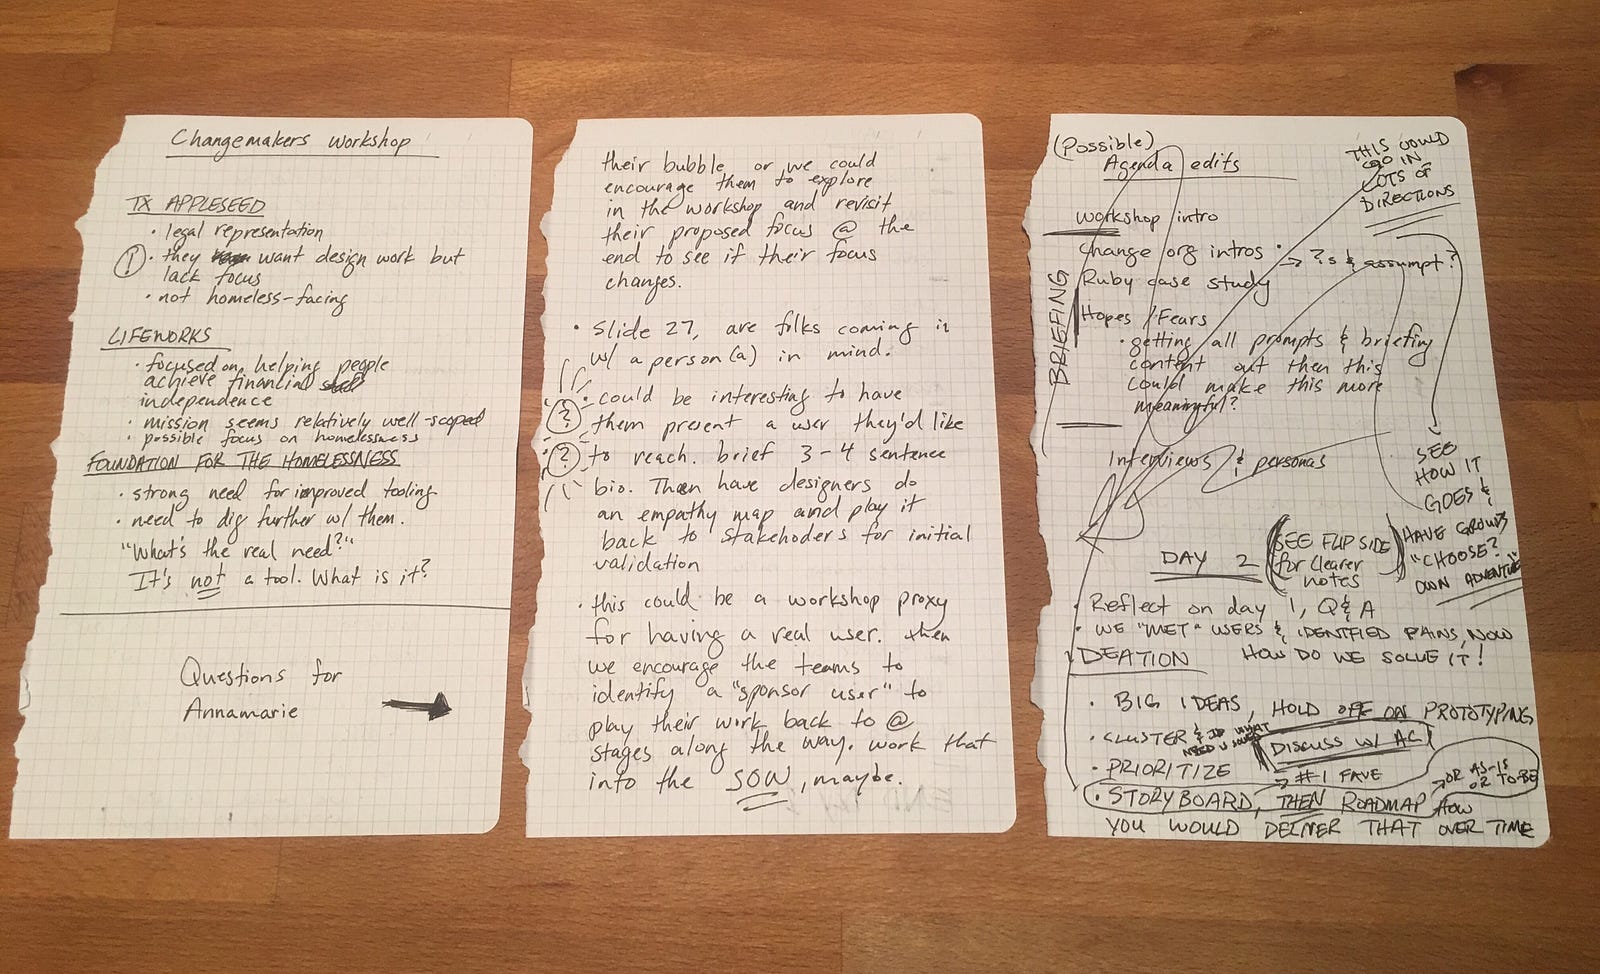 Changemakers Workshop
TX APPLESEED
• legal representation
! • they want design work but
lack focus
• not homeless-facing
LIFEWORKS
• focused on helping people
achieve financial
independence
• mission seems relatively well-scoped
• possible focus on homelessness
FOUNDATION FOR THE HOMELESSNESS
• strong need for improved tooling
• need to dig further w/ them.
"What's the real need?"
It's not a tool. What is it?
Questions for
Annamarie →
their bubble or we could
encourage them to explore
in the workshop and revisit
their proposed focus @ the
end to see if their focus
changes.
• Slide 27, are folks coming in
w/ a person(a) in mind.
• could be interesting to have
? them present a user they'd like
? to reach. brief 3-4 sentence
bio. Then have designers do
an empathy map and play it
back to stakehoders for initial
validation
• this could be a workshop proxy
for having a real user. then
we encourage the teams to
identify a "sponsor user" to
play their work back to @
stages along the way. work that
into the SOW, maybe.
(Possible)
Agenda edits
THIS COULD
GO IN
LOTS OF
DIRECTIONS
workshop intro
Change org intros •
→ ?s & assumpt?
Ruby case study
BRIEFING
Hopes / Fears
• getting all prompts & briefing
content out then this
could make this more
meaningful?
Interviews & personas
SEE
HOW IT
GOES &
HAVE GROUPS
"CHOOSE?
OWN ADVENTURE"
DAY 2
(SEE FLIP SIDE
for clearer
notes)
• Reflect on day 1, Q & A
• WE "MET" USERS & IDENTIFIED PAINS, NOW
HOW DO WE SOLVE IT!
IDEATION
• BIG IDEAS, HOLD OFF ON PROTOTYPING
• CLUSTER & ID WHAT
NEED U SOLVED
DISCUSS W/ AC
• PRIORITIZE
→ #1 FAVE
→ OR AS-IS
OR TO-BE
• STORYBOARD, THEN ROADMAP HOW
YOU WOULD DELIVER THAT OVER TIME